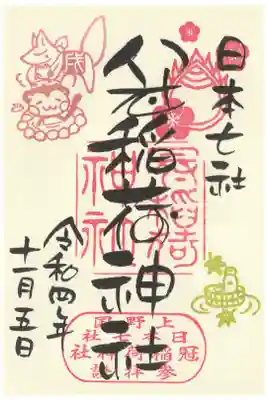 日本七社
冠稲荷神社
令和四年
十一月五日
上野国
日本七社
冠稲荷神社
参拝證